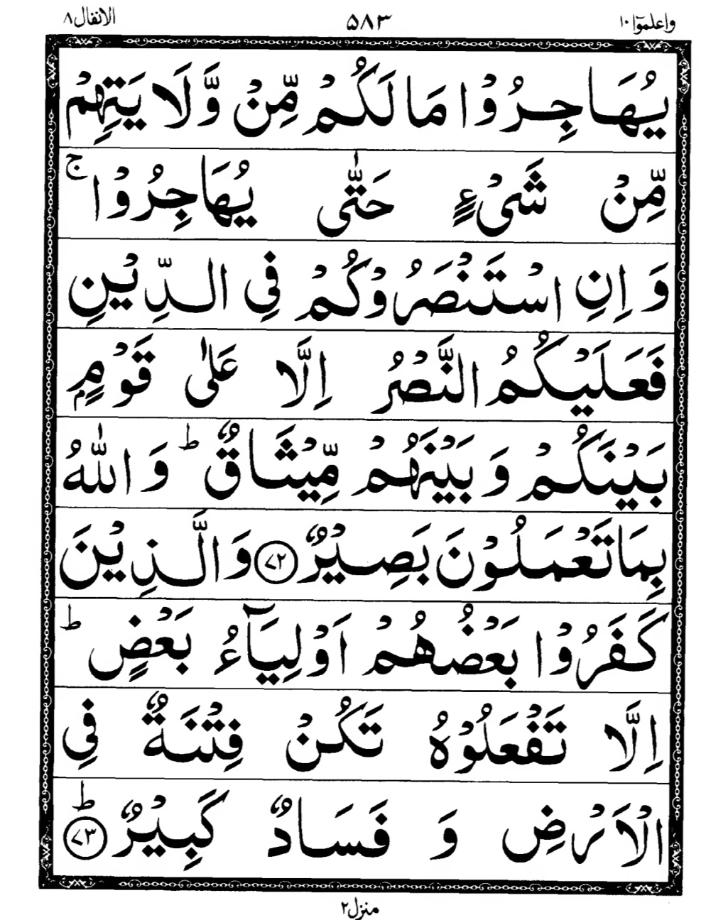 واعلموٓا ١٠ ۵۸۳ الانفال ۸
يُهَاجِرُوْا مَا لَكُمْ مِّنْ وَّلَا يَتِهِمْ
مِّنْ شَىْءٍ حَتّٰى يُهَاجِرُوْا ۚ
وَ اِنِ اسْتَنْصَرُوْكُمْ فِى الدِّيْنِ
فَعَلَيْكُمُ النَّصْرُ اِلَّا عَلٰى قَوْمٍۭ
بَيْنَكُمْ وَ بَيْنَهُمْ مِّيْثَاقٌ ؕ وَ اللّٰهُ
بِمَا تَعْمَلُوْنَ بَصِيْرٌ ﴿۷۲﴾ وَ الَّذِيْنَ
كَفَرُوْا بَعْضُهُمْ اَوْلِيَآءُ بَعْضٍ ؕ
اِلَّا تَفْعَلُوْهُ تَكُنْ فِتْنَةٌ فِى
الْاَرْضِ وَ فَسَادٌ كَبِيْرٌ ؕ﴿۷۳﴾
منزل ۲